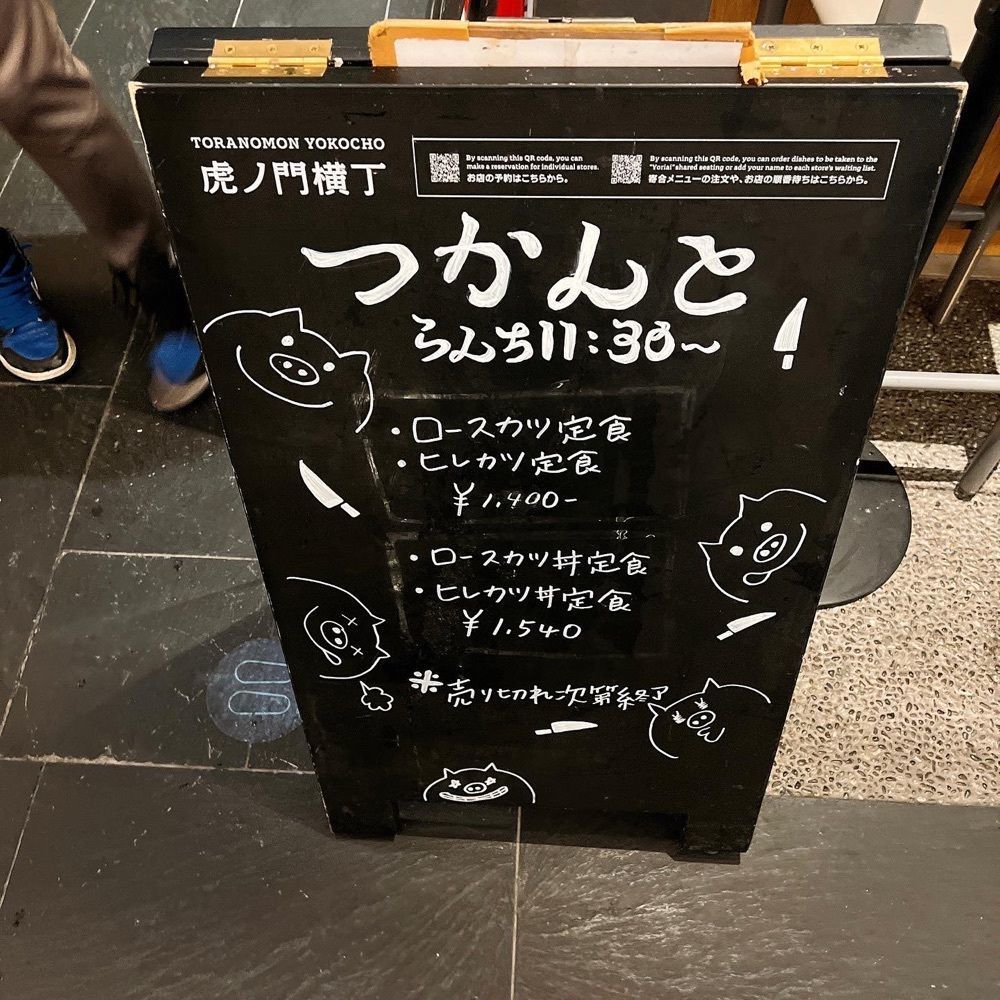 TORANOMON YOKOCHO
虎ノ門横丁
By scanning this QR code, you can
make a reservation for individual stores.
お店の予約はこちらから。
By scanning this QR code, you can order dishes to be taken to the
"Yoriai" shared seating or add your name to each store's waiting list.
寄合メニューの注文や、お店の順番待ちはこちらから。
つかんと
らんち11:30～
・ロースカツ定食
・ヒレカツ定食
¥1.400-
・ロースカツ丼定食
・ヒレカツ丼定食
¥1.540
※売り切れ次第終了